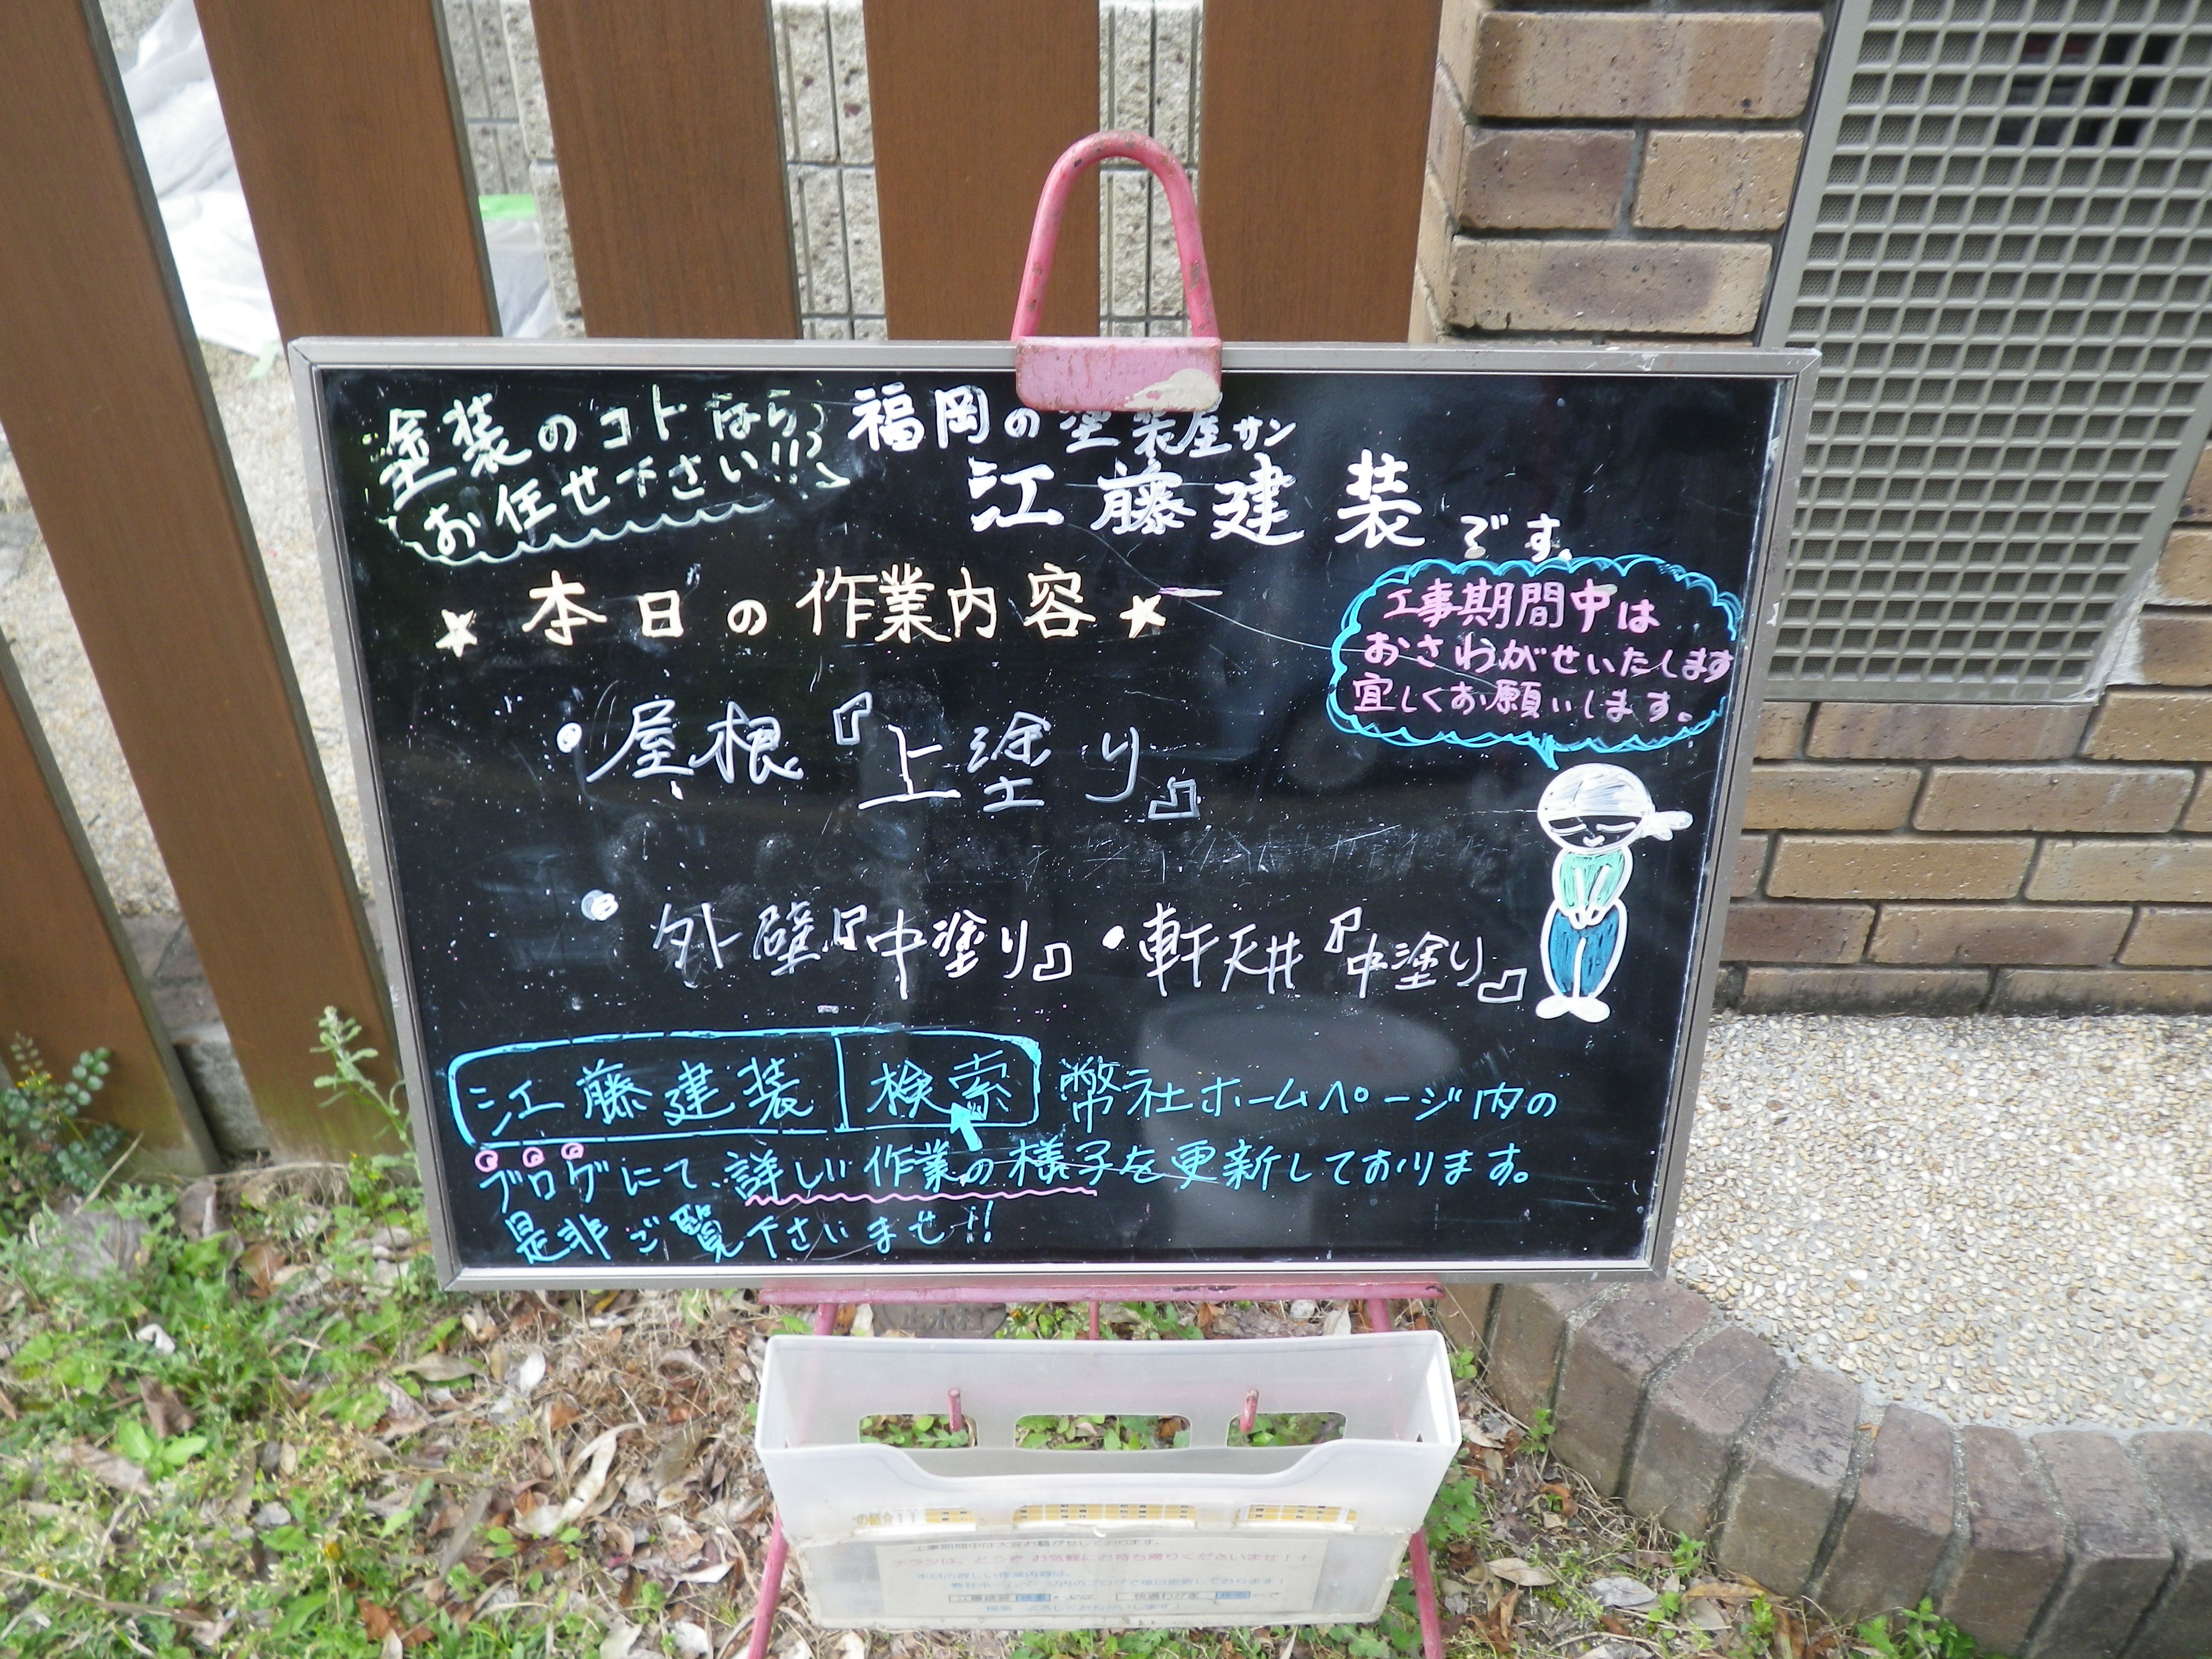 塗装のコトなら
お任せ下さい!!
福岡の塗装屋サン
江藤建装です。
★本日の作業内容★
工事期間中は
おさわがせいたします
宜しくお願いします。
・屋根『上塗り』
・外壁『中塗り』・軒天井『中塗り』
江藤建装 検索 弊社ホームページ内の
ブログにて、詳しい作業の様子を更新しております。
是非ご覧下さいませ!!
の紹介!!
工事期間中は大変お騒がせしております。
チラシは、どうぞ お気軽にお持ち帰りくださいませ!!
本日の詳しい作業内容は、
弊社ホームページ内のブログで毎日更新しております!